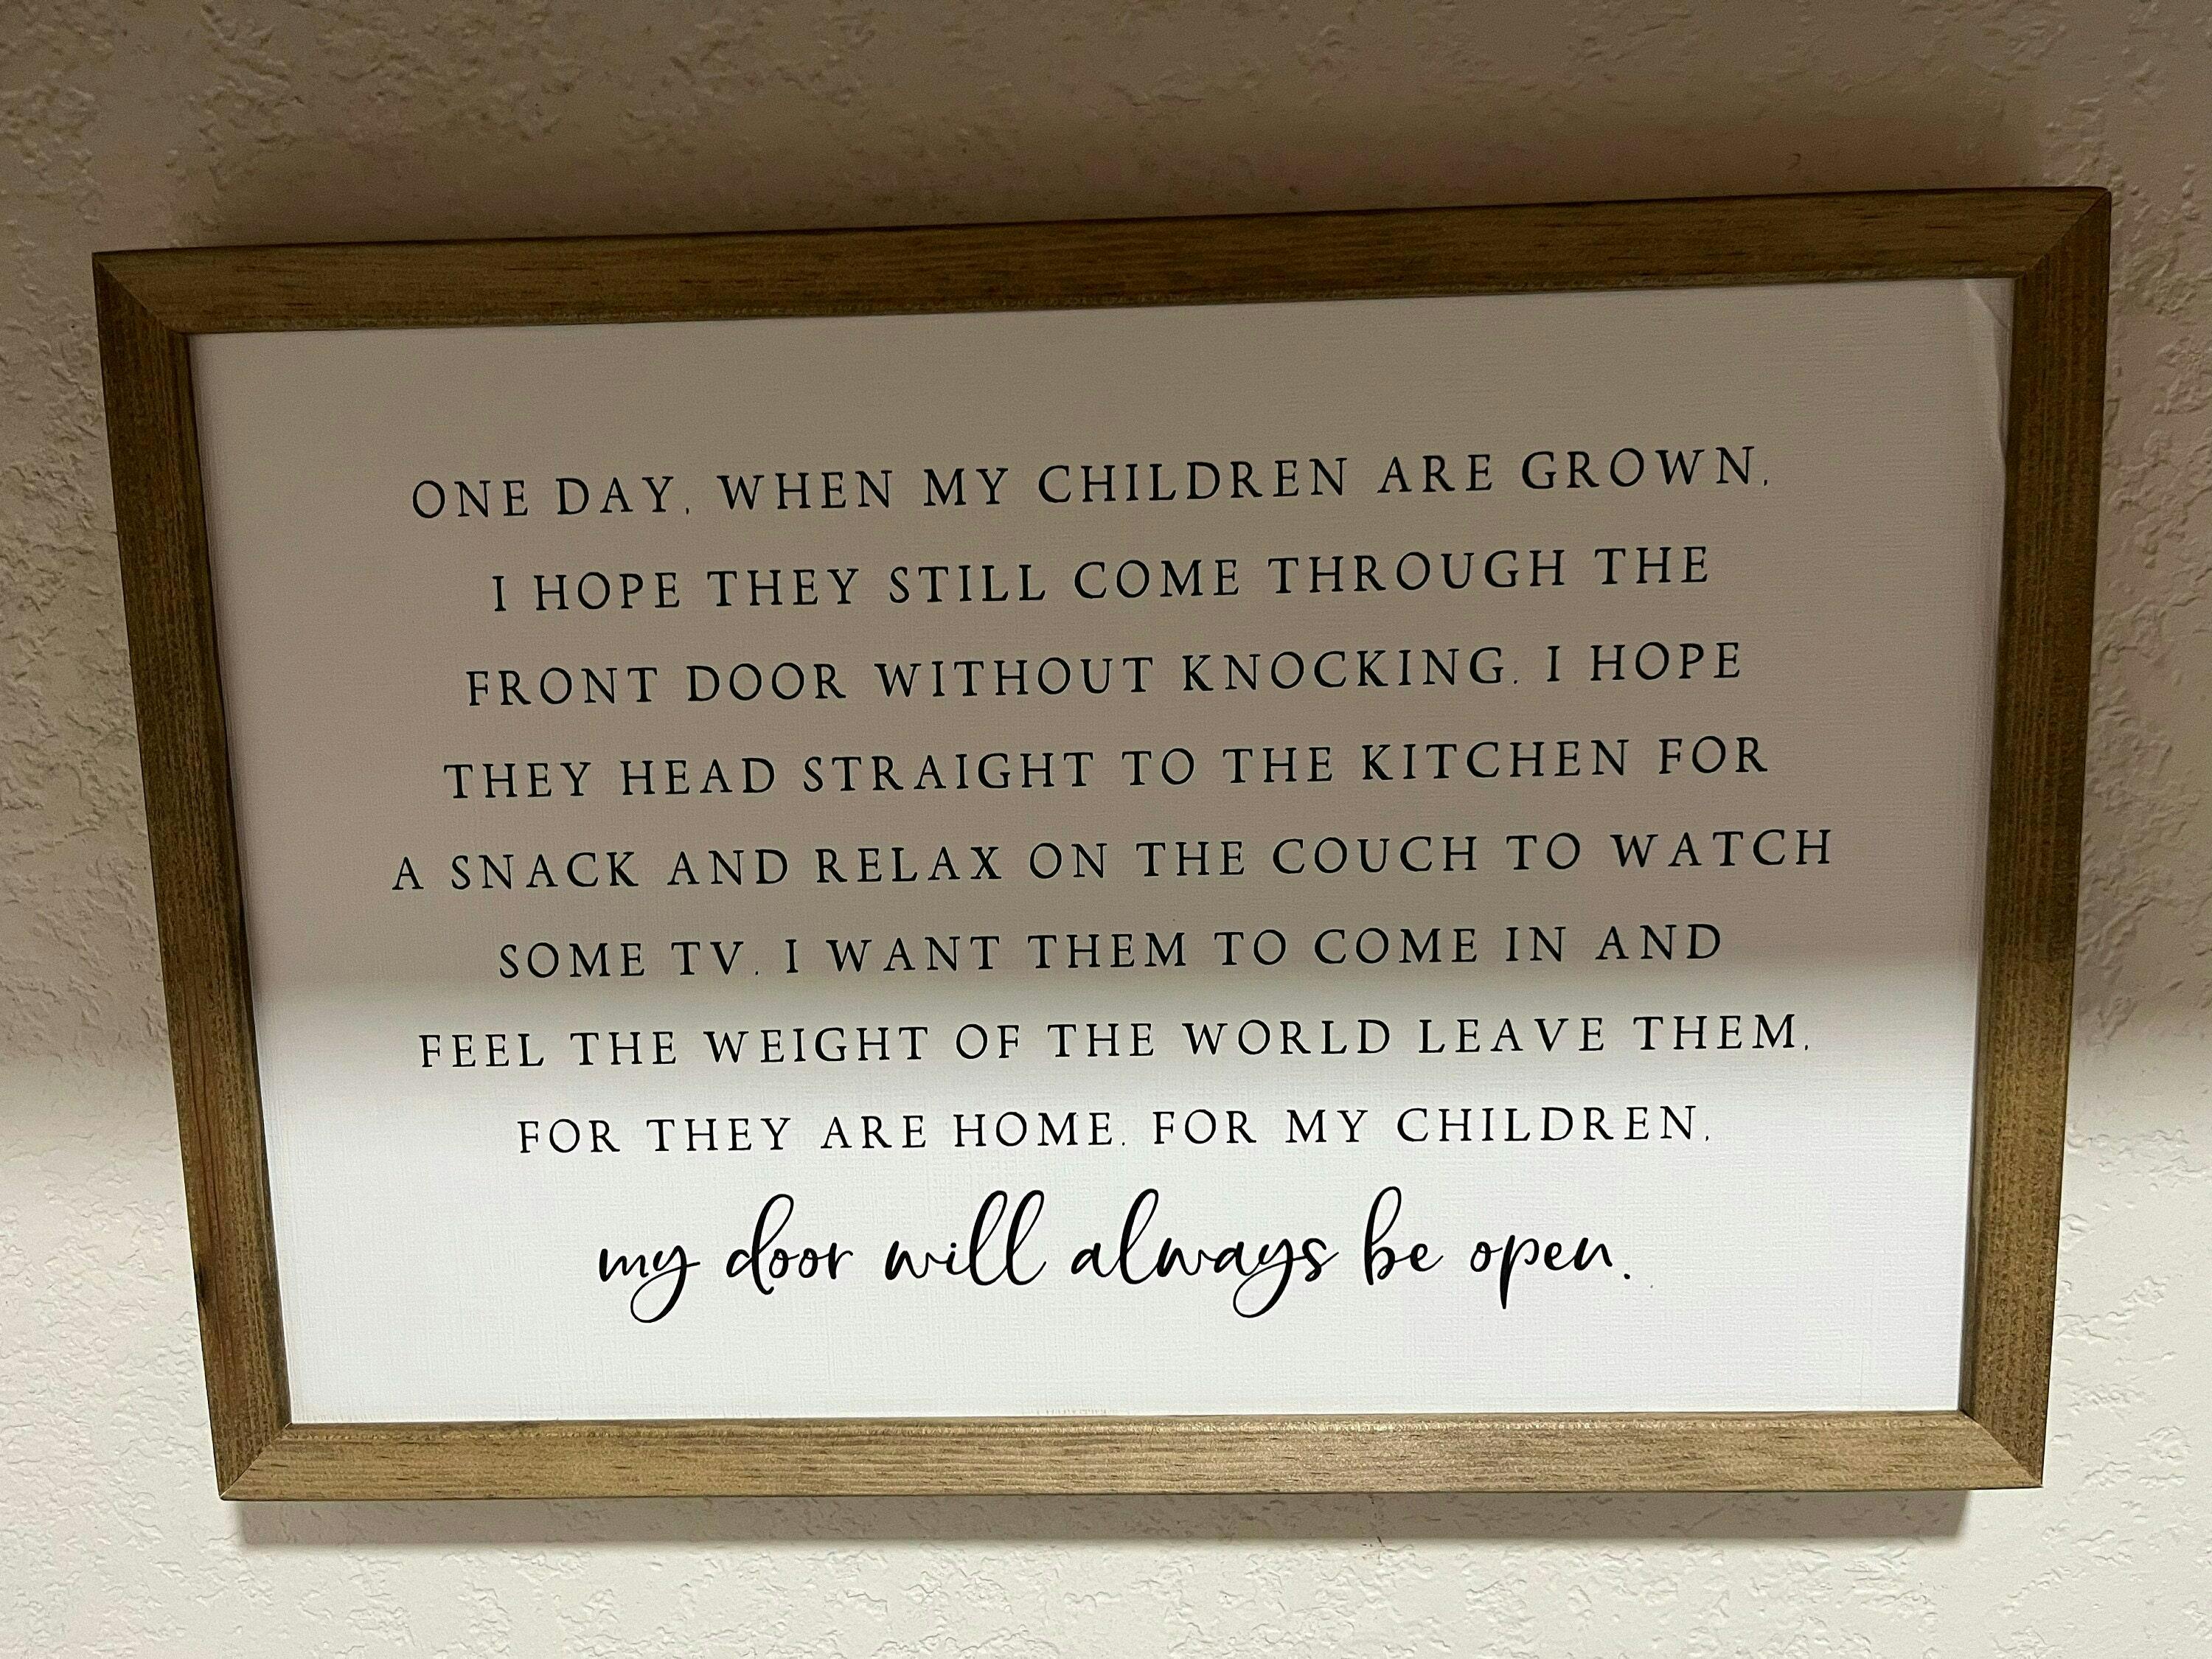 ONE DAY, WHEN MY CHILDREN ARE GROWN,
I HOPE THEY STILL COME THROUGH THE
FRONT DOOR WITHOUT KNOCKING. I HOPE
THEY HEAD STRAIGHT TO THE KITCHEN FOR
A SNACK AND RELAX ON THE COUCH TO WATCH
SOME TV. I WANT THEM TO COME IN AND
FEEL THE WEIGHT OF THE WORLD LEAVE THEM,
FOR THEY ARE HOME. FOR MY CHILDREN,
my door will always be open.